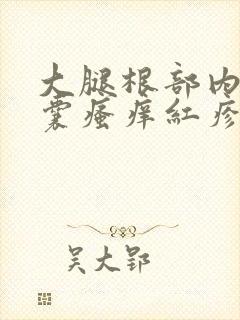 大腿根部内
囊瘙痒红疹
吴大郢